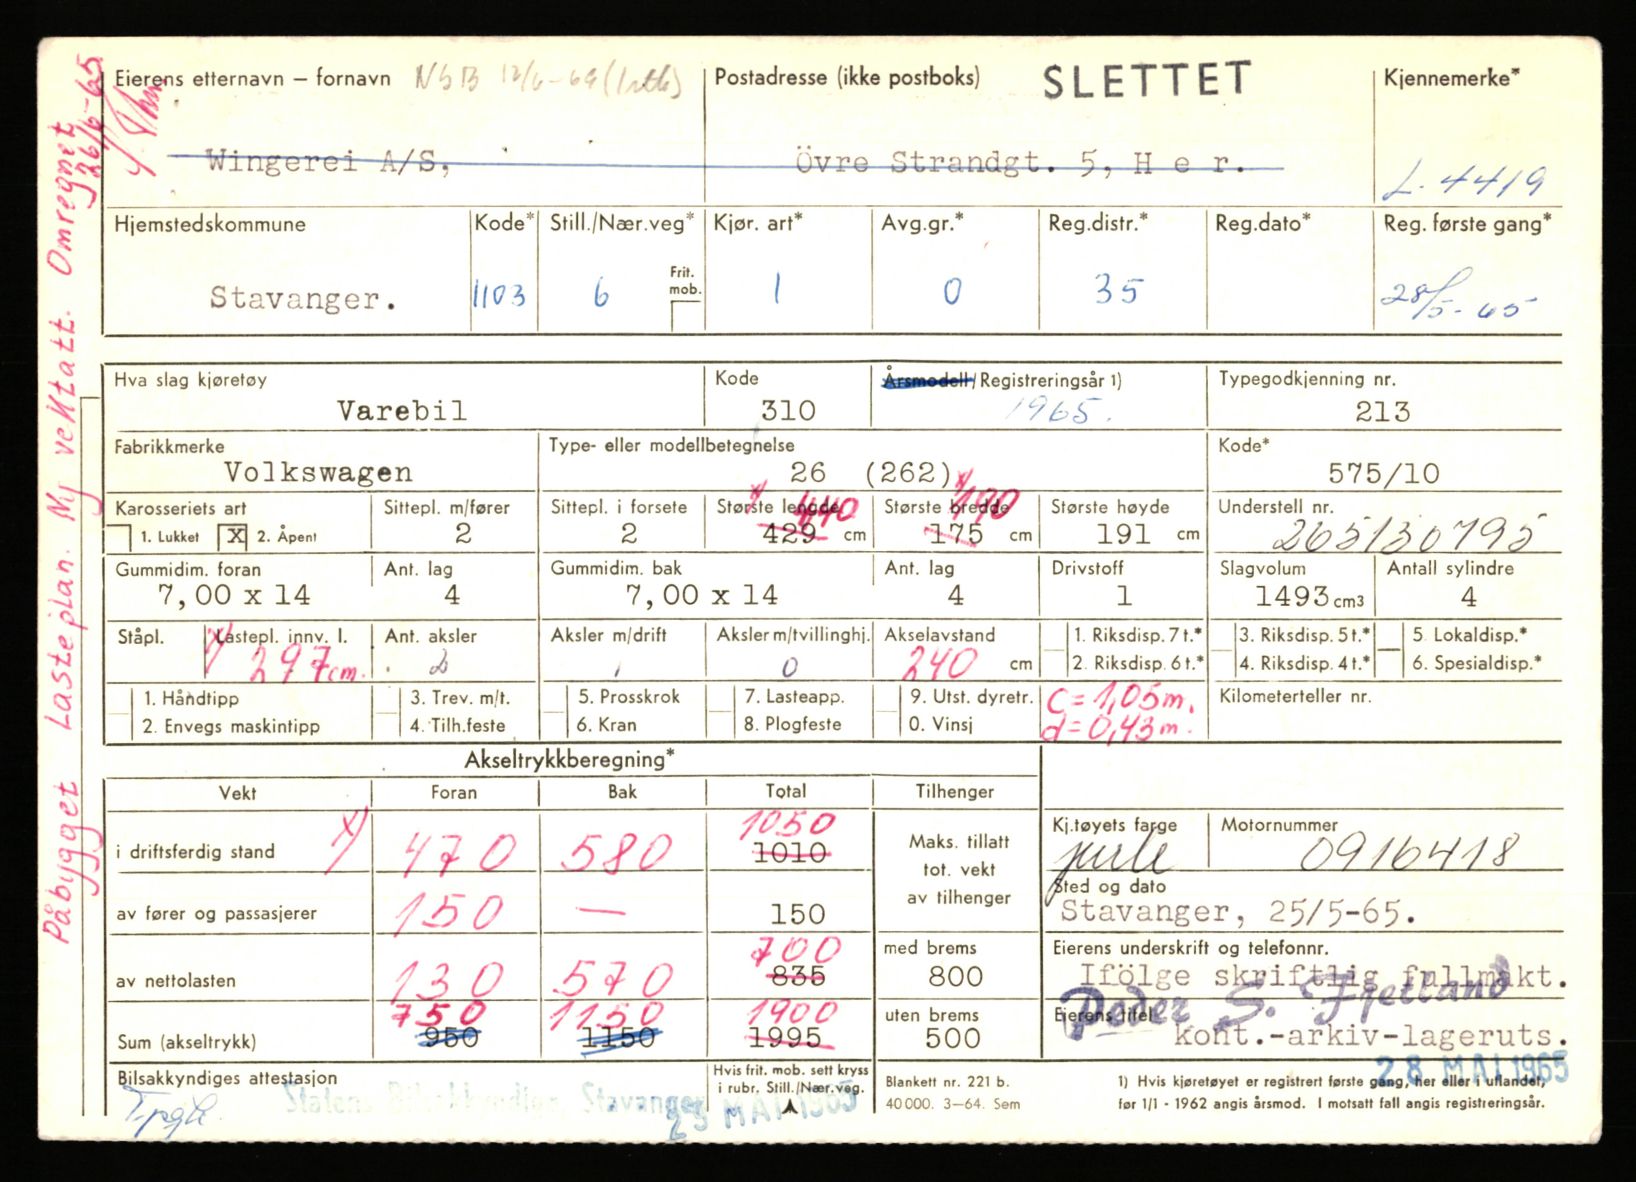 Påbygget Lasteplan. Ny vektatt. Omregnet 26/6-65
Eierens etternavn – fornavn NSB 12/6-69 Postadresse (ikke postboks) SLETTET Kjennemerke*
Wingerei A/S, Övre Strandgt. 5, H e r. L. 4419
Hjemstedskommune Kode* Still./Nær.veg* Kjør. art* Avg.gr.* Reg.distr.* Reg.dato* Reg. første gang*
Stavanger. 1103 6 Frit. mob. 1 0 35 28/5-65
Hva slag kjøretøy Kode Årsmodell/Registreringsår 1) Typegodkjenning nr.
Varebil 310 1965. 213
Fabrikkmerke Type- eller modellbetegnelse Kode*
Volkswagen 26 (262) 575/10
Karosseriets art Sittepl. m/fører Sittepl. i forsete Største lengde Største bredde Største høyde Understell nr.
x) 440 x) 190
1. Lukket X 2. Åpent 2 2 429 cm 175 cm 191 cm 265130795
Gummidim. foran Ant. lag Gummidim. bak Ant. lag Drivstoff Slagvolum Antall sylindre
7,00 x 14 4 7,00 x 14 4 1 1493 cm3 4
Ståpl. Lastepl. innv. l. Ant. aksler Aksler m/drift Aksler m/tvillinghj. Akselavstand 1. Riksdisp. 7 t.* 3. Riksdisp. 5 t.* 5. Lokaldisp.*
x) 297 cm. 2 1 0 240 cm 2. Riksdisp. 6 t.* 4. Riksdisp. 4 t.* 6. Spesialdisp.*
1. Håndtipp 3. Trev. m/t. 5. Prosskrok 7. Lasteapp. 9. Utst. dyretr. C = 1,05 m. Kilometerteller nr.
2. Envegs maskintipp 4. Tilh.feste 6. Kran 8. Plogfeste 0. Vinsj d = 0,43 m.
Akseltrykkberegning*
Vekt Foran Bak Total Tilhenger
1050
i driftsferdig stand x) 470 580 1010 Maks. tillatt tot. vekt av tilhenger
Kj.tøyets farge Motornummer
perle 0916418
Sted og dato
av fører og passasjerer 150 — 150 Stavanger, 25/5-65.
700 med brems Eierens underskrift og telefonnr.
av nettolasten 130 570 835 800 Ifölge skriftlig fullmakt.
Peder S. Fjetland
750 1150 1900 uten brems Eierens tittel
Sum (akseltrykk) 950 1150 1995 500 kont.-arkiv-lageruts.
28 MAI 1965
Bilsakkyndiges attestasjon Hvis frit. mob. sett kryss i rubr. Still./Nær.veg.
Statens Bilsakkyndige, Stavanger 25 MAI 1965
Blankett nr. 221 b.
40 000. 3–64. Sem
1) Hvis kjøretøyet er registrert første gang, her eller i utlandet,
før 1/1 - 1962 angis årsmod. I motsatt fall angis registreringsår.